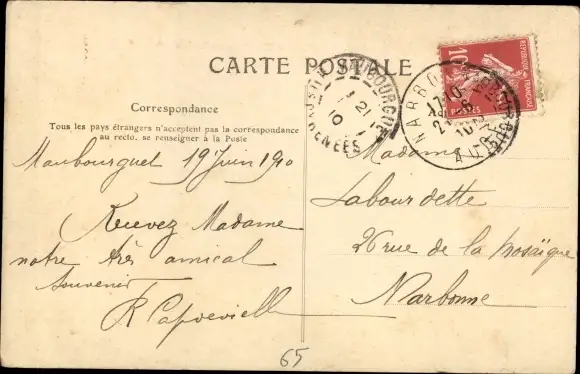 CARTE POSTALE
Correspondance
Tous les pays étrangers n'acceptent pas la correspondance
au recto. se renseigner à la Poste
Maubourguet 19 Juin 1910
Recevez Madame
notre très amical
Souvenir
R Capdevielle
Madame
Labourdette
26 rue de la Mosaïque
Narbonne
65
MAUBOURGUET
21
10
PYRENEES
NARBONNE
AUDE
10
REPUBLIQUE FRANÇAISE
POSTES